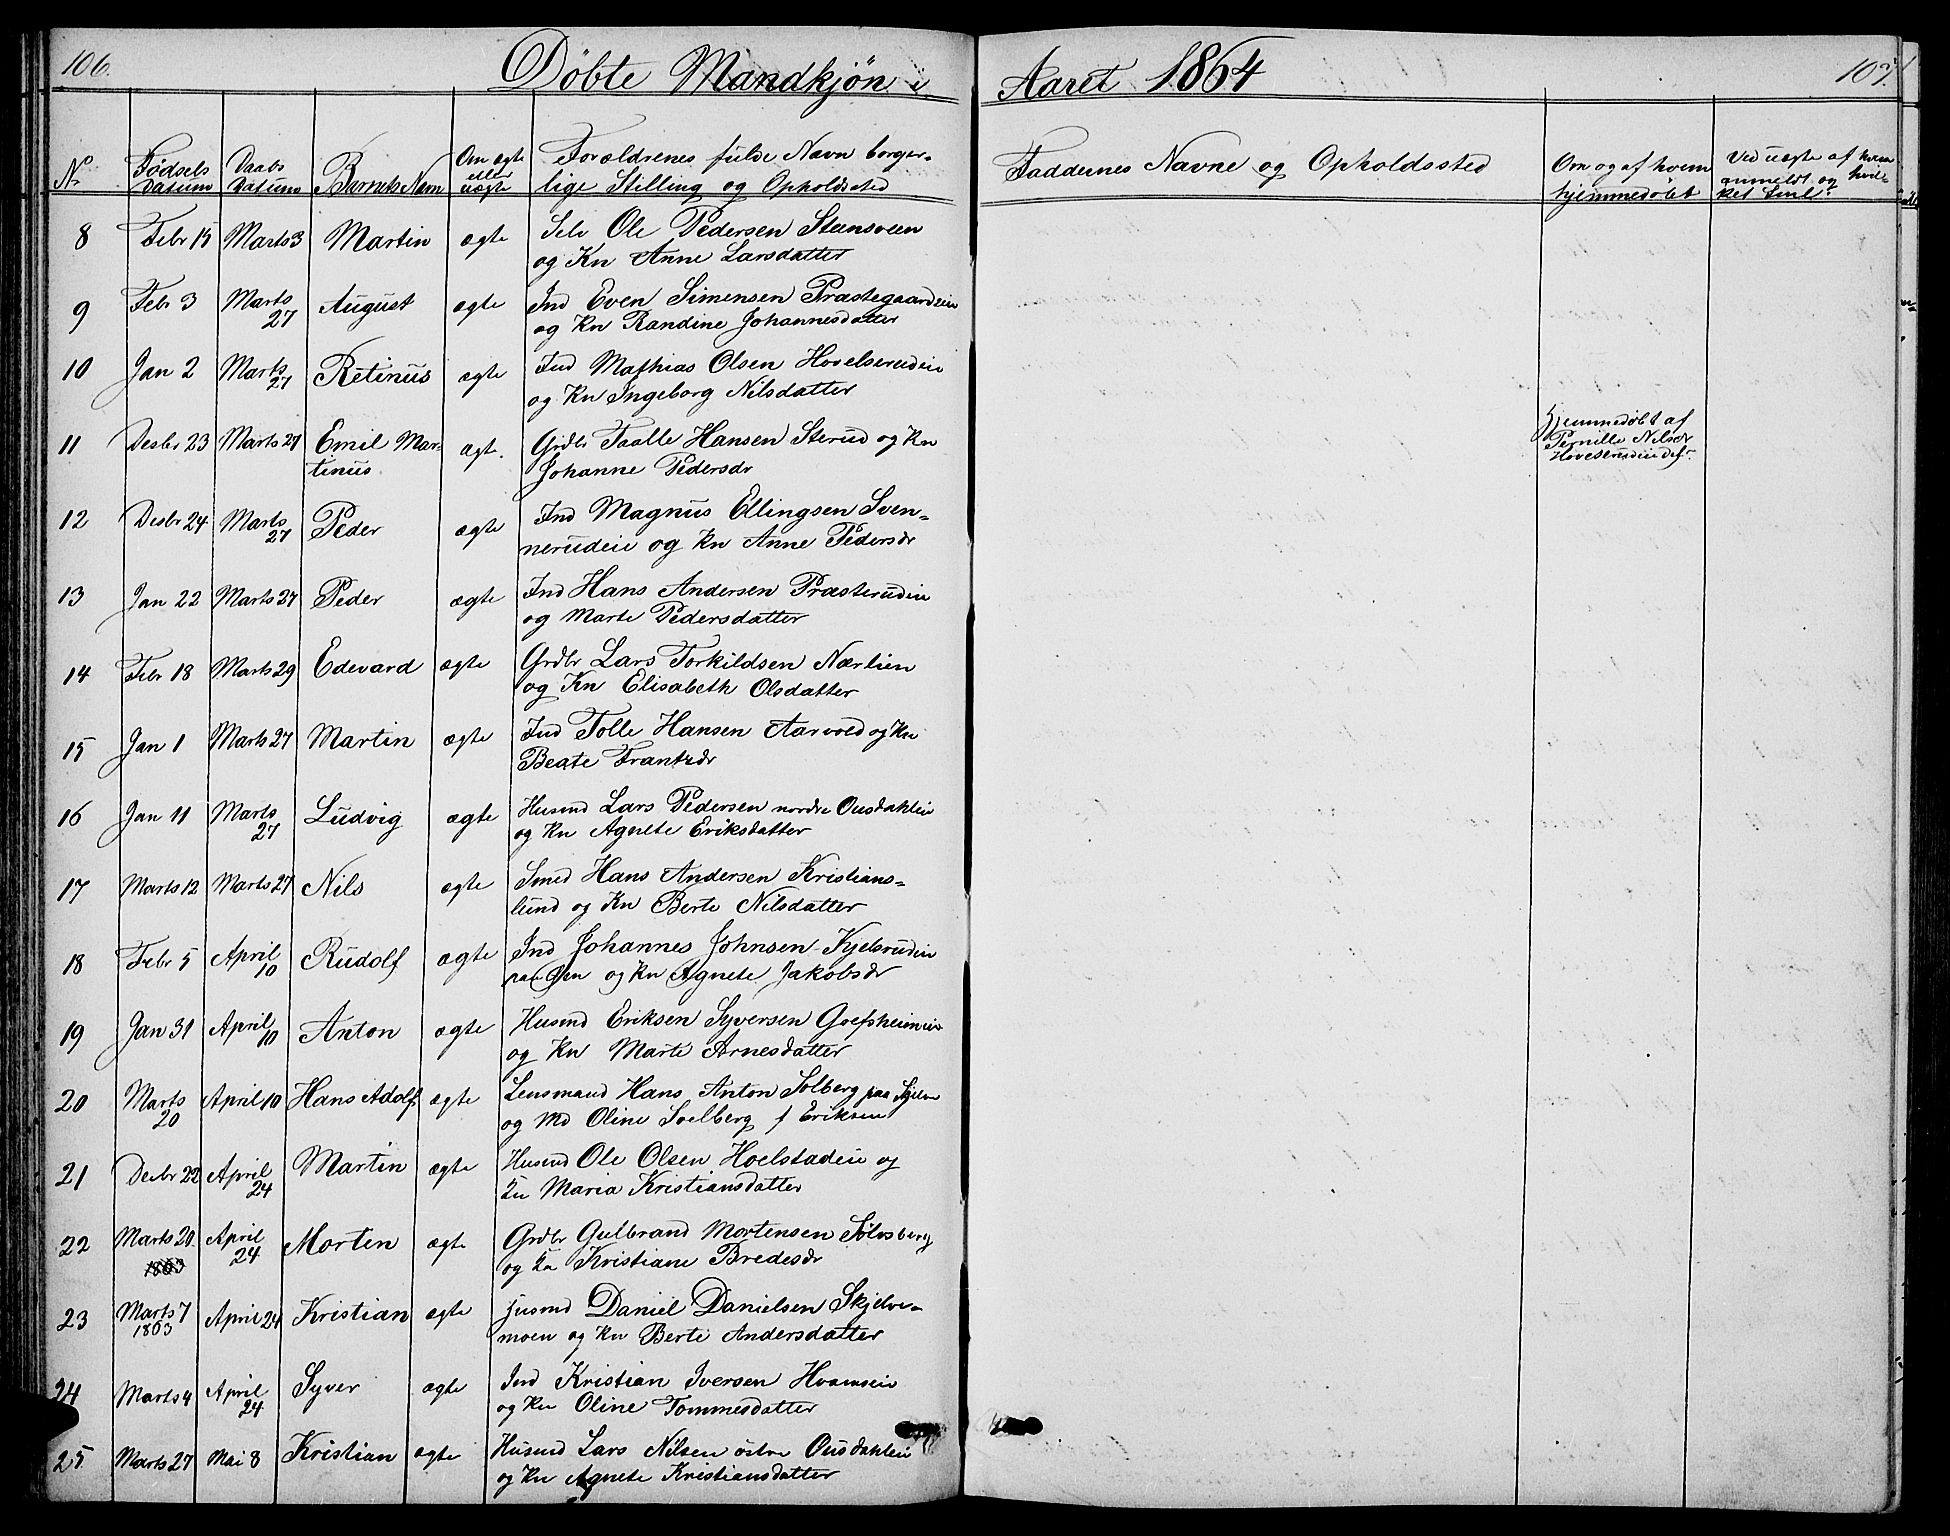 106.
Döbte Mandkjön i
Aaret 1864
107.
No
Födsels Datum
Daabs Datum
Barnets Navn
Om ægte eller uægte
Forældrenes fulde Navn borger-
lige Stilling og Opholdssted
Faddernes Navne og Opholdssted
Om og af hvem
hjemmedöbt
Ved uægte af hvem
anmeldt og hvil-
ket Leml?
8 Febr 15 Marts 3 Martin ægte Selv Ole Pedersen Stensveen
og Kn Anne Larsdatter
9 Febr 3 Marts 27 August ægte Ind Even Simensen Præstegaardeie
og Kn Randine Johannesdatter
10 Jan 2 Marts 27 Retinus ægte Ind Mathias Olsen Hovelserudeie
og Kn Ingeborg Nilsdatter
11 Desbr 23 Marts 27 Emil Mar- ægt. Grdbr Taalle Hansen Sterud og Kn
tinus Johanne Pedersdr
Hjemmedöbt af
Pernille Nilsdr
Hovelserudeie
12 Desbr 24 Marts 27 Peder ægte Ind Magnus Ellingsen Sven-
nerudeie og Kn Anne Pedersdr
13 Jan 22 Marts 27 Peder ægte Ind Hans Andersen Præsterudeie
og Marte Pedersdatter
14 Febr 18 Marts 29 Edevard ægte Grdbr Lars Torkildsen Nærlien
og Kn Elisabeth Olsdatter
15 Jan 1 Marts 27 Martin ægte Ind Tolle Hansen Aarvold og Kn
Beate Frantzdr
16 Jan 11 Marts 27 Ludvig ægte Husmd Lars Pedersen nordre Ousdahleie
og Kn Agnete Eriksdatter
17 Marts 12 Marts 27 Nils ægte Smed Hans Andersen Kristians-
lund og Kn Berte Nilsdatter
18 Febr 5 April 10 Rudolf ægte Ind Johannes Johnsen Kjelsrudeie
paa Öen og Kn Agnete Jakobsdr
19 Jan 31 April 10 Anton ægte Husmd Eriksen Syversen Goefsheimeie
og Kn Marte Arnesdatter
20 Marts 20 April 10 Hans Adolf ægte Lensmand Hans Anton Solberg paa Skjelve
og Md Oline Soelberg f Eriksen
21 Desbr 22 April 24 Martin ægte Husmd Ole Olsen Hoelstadeie og
Kn Maria Kristiansdatter
22 Marts 20 April 24 Morten ægte Grdbr Gulbrand Mortensen Sölvsberg
1863 og Kn Kristiane Bredesdr
23 Marts 7 April 24 Kristian ægte Husmd Daniel Danielsen Skjelve-
1863 moen og Kn Berte Andersdatter
24 Marts 4 April 24 Syver ægte Ind Kristian Iversen Hvamseie
og Kn Oline Tommesdatter
25 Marts 27 Mai 8 Kristian ægte Husmd Lars Nilsen östre Ousdahleie
og Kn Agnete Kristiansdatter